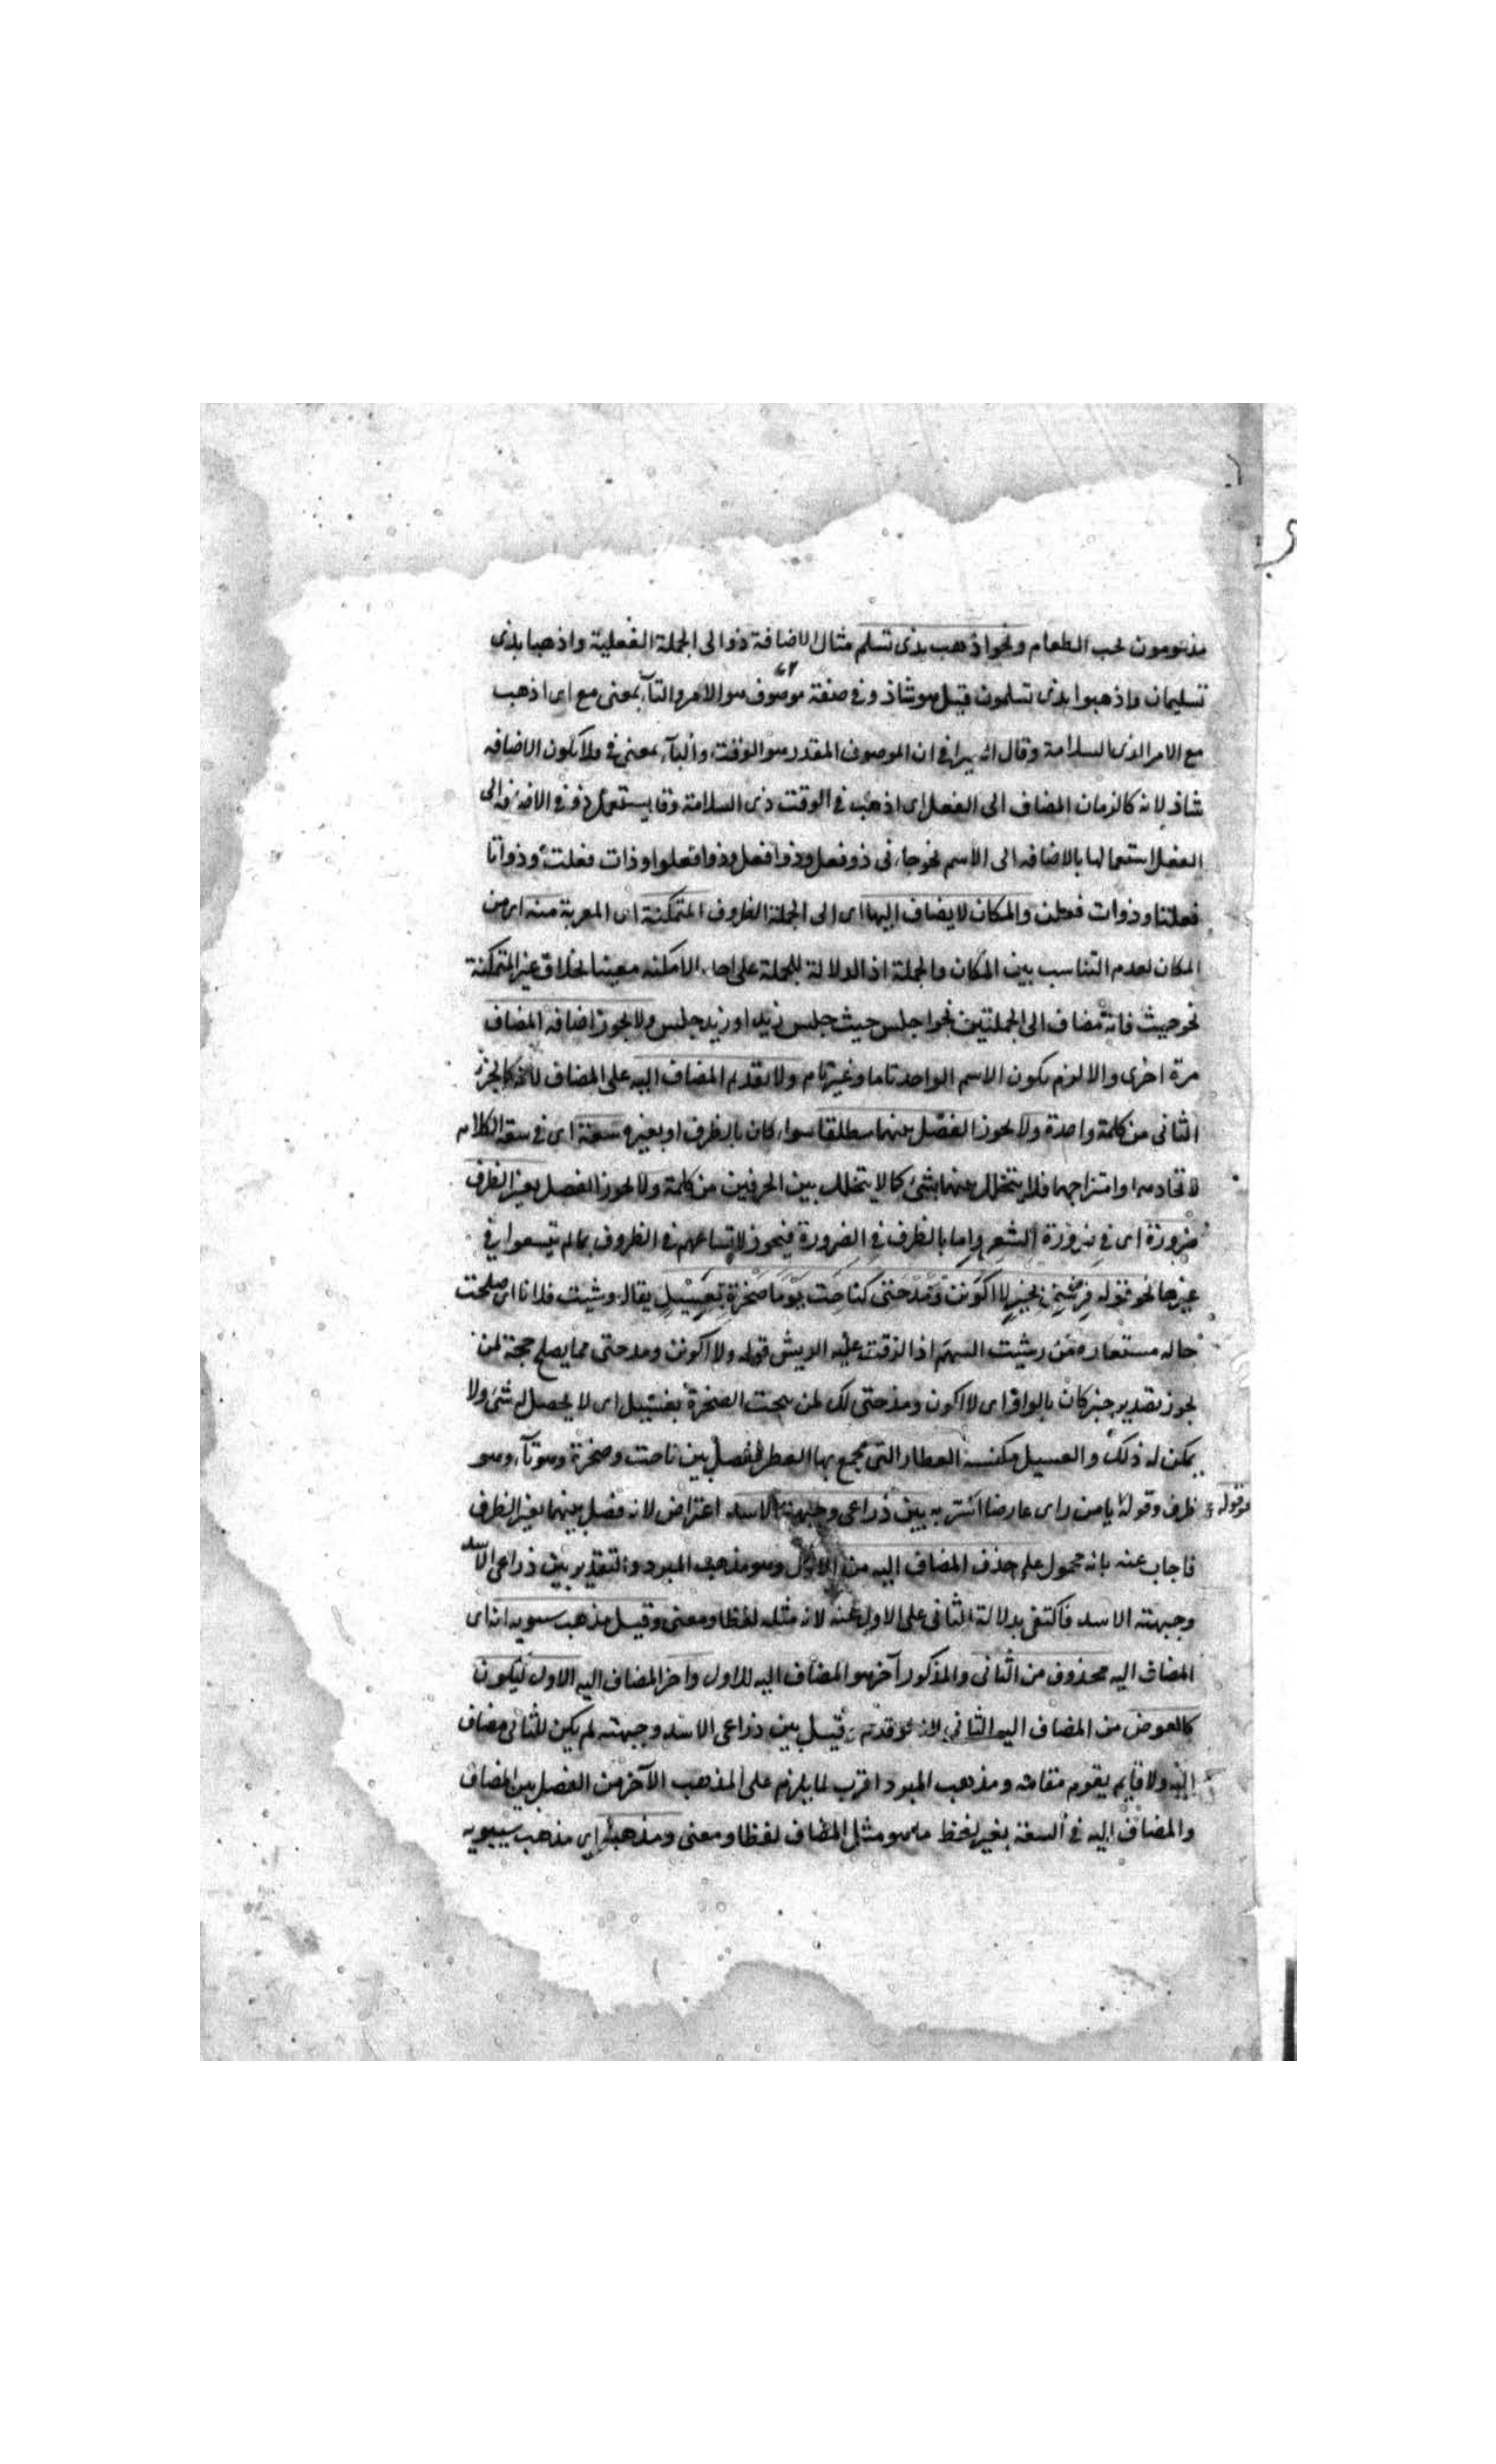 مذمومون لحب الطعام ونحو اذهب بذى تسلم مثال لاضافة ذو الى الجملة الفعلية واذهبا بذى
تسلمان واذهبوا بذى تسلمون قيل هو شاذ وفى صفة موصوف هو الامر والباء بمعنى مع اى اذهب
مع الامر الذى السلامة وقال السيرافى ان الموصوف المقدر هو الوقت والباء بمعنى فى ولا تكون الاضافة
شاذ لانه كالزمان المضاف الى الفعل اى اذهب فى الوقت ذى السلامة وقل يستعمل ذو فى الاضافة الى
الفعل استعمالها بالاضافة الى الاسم نحو جاءنى ذو فعل وذوا فعل وذوا فعلوا وذات فعلت وذواتا
فعلتا وذوات فعلن والمكان لا يضاف اليها اى الى الجملة الظروف المتمكنة اى المعربة منه اى من
المكان لعدم التناسب بين المكان والجملة اذ الدلالة للجملة على احد الامكنة معينا بخلاف غير المتمكنة
نحو حيث فانه مضاف الى الجملتين نحو اجلس حيث جلس زيد او زيد جلس ولا يجوز اضافة المضاف
مرة اخرى والا لزم كون الاسم الواحد تاما وغير تام ولا تقديم المضاف اليه على المضاف لانه كالجزء
الثانى من كلمة واحدة ولا يجوز الفصل بينهما مطلقا سواء كان بالظرف او بغيره سعة اى فى سعة الكلام
لاتحادهما وامتزاجهما فلا يتخلل بينهما شئ كما لا يتخلل بين الحرفين من كلمة ولا يجوز الفصل بغير الظرف
ضرورة اى فى ضرورة الشعر واما بالظرف فى الضرورة فيجوز لاتساعهم فى الظروف بما لم يتسعوا فى
غيرها نحو قوله فرشنى بخير لا اكونن ومدحتى كناحت يوما صخرة بعسيل يقال رشت فلانا اى صلحت
حاله مستعاره من ريشت السهم اذا الزقت عليه الريش قوله ولا اكونن ومدحتى مما يصلح حجة لمن
يجوز تقدير خبر كان بالواو اى لا اكون ومدحتى لك لمن ينحت الصخرة بعسيل اى لا يحصل له شئ ولا
يمكن له ذلك والعسيل مكنسة العطار التى يجمع بها العطر ففصل بين ناحت وصخرة وهو يوما وهو
ظرف وقوله يا من راى عارضا اسر به بين ذراعى وجبهة الاسد اعتراض لانه فصل بينهما بغير الظرف
نحو قوله
فاجاب عنه بانه محمول على حذف المضاف اليه من الاول وهو مذهب المبرد والتقدير بين ذراعى الاسد
وجبهته الاسد فاكتفى بدلالة الثانى على الاول عنه لانه مثله لفظا ومعنى وقيل مذهب سيبويه انه اى
المضاف اليه محذوف من الثانى والمذكور آخرا هو المضاف اليه للاول واخر المضاف اليه الاول ليكون
كالعوض من المضاف اليه الثانى لانه لو قدم وقيل بين ذراعى الاسد وجبهته لم يكن للثانى مضاف
اليه ولا قايم يقوم مقامه ومذهب المبرد اقرب لما يلزم على المذهب الآخر من الفصل بين المضاف
والمضاف اليه فى السعة بغير لفظ ما هو مثل المضاف لفظا ومعنى ومذهبه اى مذهب سيبويه